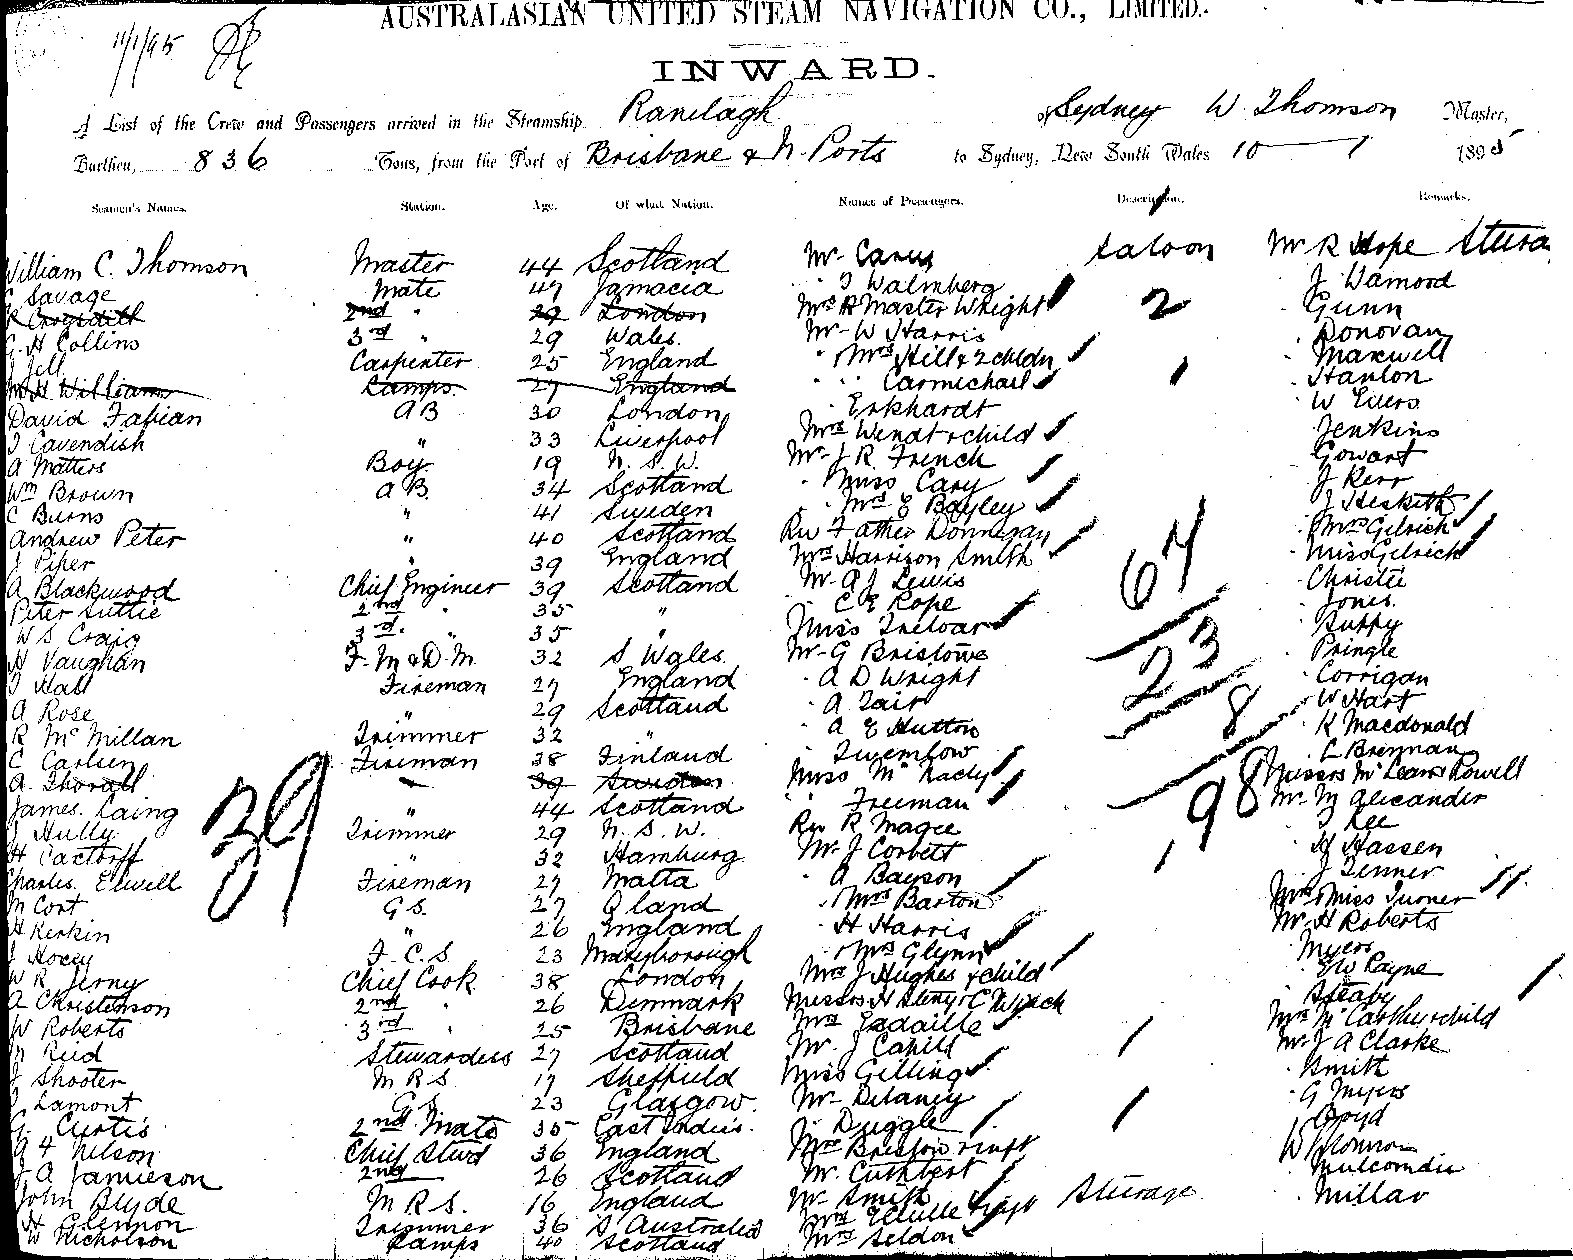 AUSTRALASIAN UNITED STEAM NAVIGATION CO., LIMITED.
11/1/95
INWARD.
A List of the Crew and Passengers arrived in the Steamship Ranelagh of Sydney W. Thomson Master,
Burthen, 836 Tons, from the Port of Brisbane & N. Ports to Sydney, New South Wales 10 1 1895
Seamen's Names. Station. Age. Of what Nation. Names of Passengers. Description. Remarks.
William C. Thomson Master 44 Scotland Mr Carus Saloon Mr R Hope
Savage Mate 47 Jamacia J Walmberg J
2nd " 29 London Mrs & Master Wright 2 Gunn
G. H Collins 3rd " 29 Wales. Mr W Harris Donovan
J Jell Carpenter 25 England Mrs Hill & 2 chldn Maxwell
Williams Lamps. 27 England Carmichael Hanlon
David Fabian AB 30 London Erkhardt W Evers
J Cavendish " 33 Liverpool Mrs Wendt & child Jenkins
A Matters Boy. 19 N. S. W. Mr J R. French Gowart
Wm Brown AB. 34 Scotland Miss Cary J Kerr
C Burns " 41 Sweden Mrs E Bayley J Hesketh
Andrew Peter " 40 Scotland Rev Father Donnegan Mrs Gelrich
J Piper 39 England Mrs Harrison Smith Miss Gelrich
A Blackwood Chief Engineer 39 Scotland Mr A J Lewis 67 Christie
Peter Suttie 2nd " 35 " C E Rope Jones.
W S. Craig 3rd. " 35 " Miss Treloar
H Vaughan F. M & D. M. 32 S Wales. Mr G Bristowe 23 Pringle
J Hall Fireman 27 England A D Wright Corrigan
A Rose " 29 Scotland A Tair W Hart
R McMillan Trimmer 32 " A E Hutton 8 K Macdonald
C Carlsen Fireman 38 Finland Twemlow L Brennan
A. Thorall 39 Sweden Miss Messrs McLean & Rowell
James. Laing " 44 Scotland Freeman 98 Mr M Alexander
J Hully 39 Trimmer 29 N. S. W. Rev R Magee J Lee
H " 32 Hamburg Mr J Corbett 1 H Hassen
Charles. Elwell Fireman 27 Malta A Bayson J Jenner
M Cort G S. 27 Mrs Barton Mrs & Miss Turner
H Kerkin " 26 England H Harris Mr H Roberts
J F. C. S. 23 Maryborough Mrs Glynn Myers
W R. Chief Cook 38 London Mrs J Hughes & child W Payne
A Christenson 2nd " 26 Denmark Messrs H & C Winch
W Roberts 3rd " 25 Brisbane Mrs Mrs McCarthy & child
M Reid Stewardess 27 Scotland Mr. J Cahill Mr J A Clarke
J Shooter M R S. 17 Sheffield Miss Gelling Smith
J Lamont G S 23 Glasgow. Mr Delaney G Myers
G. Curtis 2nd Mate 35 East Indies. J. Duggle Boyd
Nelson Chief Stwd 36 England Mrs Bristow & inft
J. A Jamieson 2nd 26 Scotland Mr. Cuthbert
John Blyde M R S. 16 England Mr Smith Steerage Millar
H Glennon Trimmer 36 S Australia Mrs
W Nicholson Lamps 40 Scotland Mrs Seldon